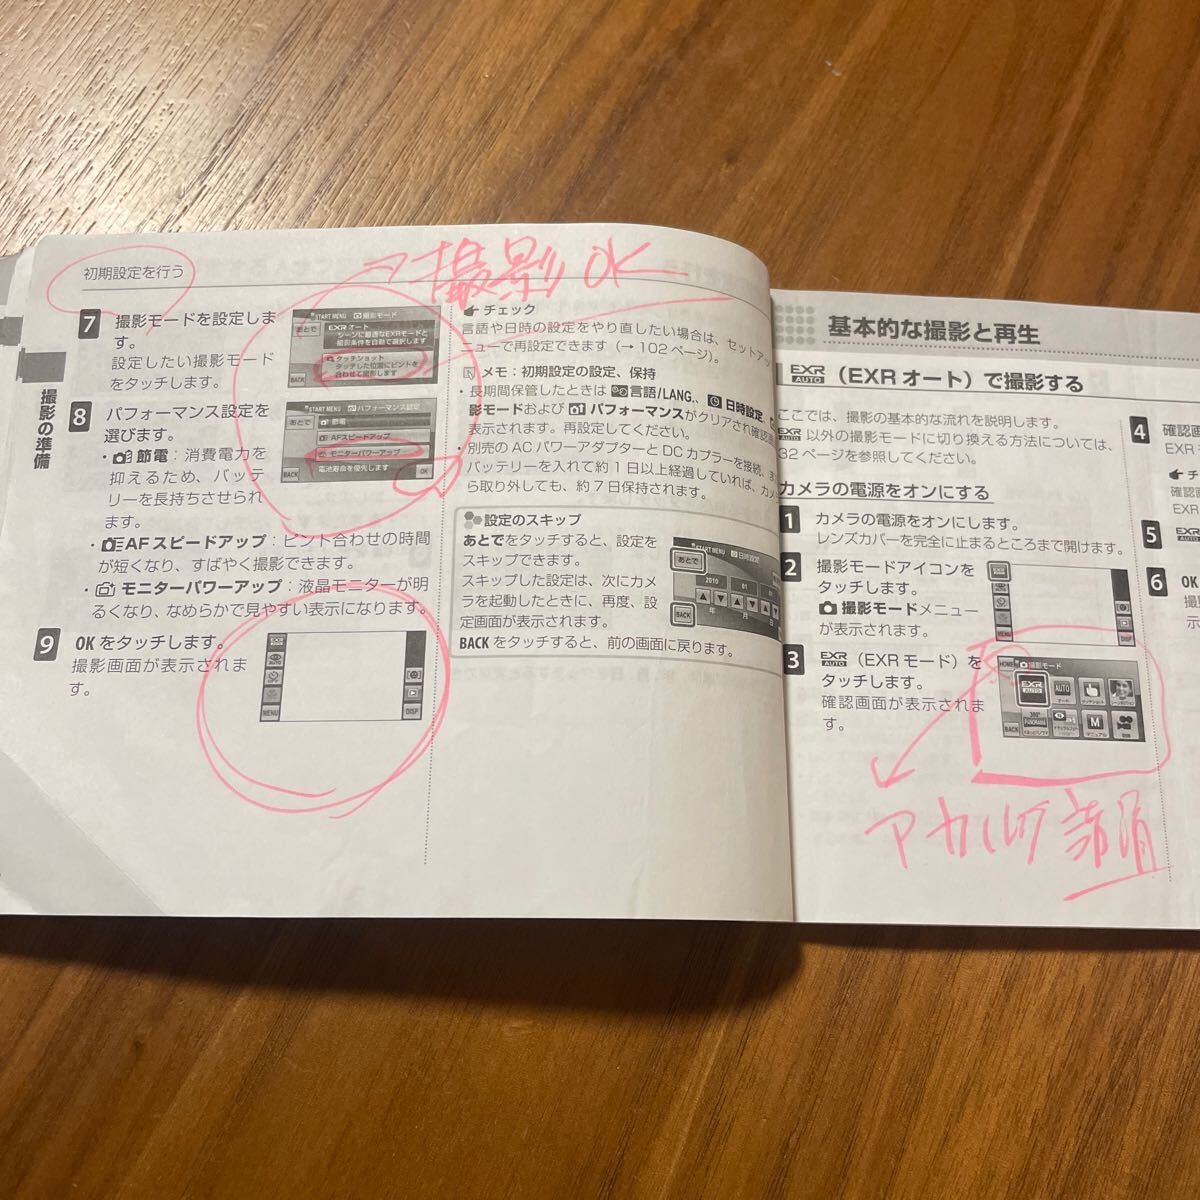 初期設定を行う
撮影OK
撮影の準備
7 撮影モードを設定しま
す。
設定したい撮影モード
をタッチします。
START MENU 撮影モード
あとで
EXR オート
シーンに最適なEXRモードと
撮影条件を自動で選択します
タッチショット
タッチした位置にピントを
合わせて撮影します
BACK
8 パフォーマンス設定を
選びます。
・節電：消費電力を
抑えるため、バッテ
リーを長持ちさせられ
ます。
START MENU パフォーマンス設定
あとで
節電
AFスピードアップ
モニターパワーアップ
電池寿命を優先します
BACK
OK
・AFスピードアップ：ピント合わせの時間
が短くなり、すばやく撮影できます。
・モニターパワーアップ：液晶モニターが明
るくなり、なめらかで見やすい表示になります。
9 OKをタッチします。
撮影画面が表示されま
す。
EXR
AUTO
MENU
DISP
チェック
言語や日時の設定をやり直したい場合は、セットアッ
ニューで再設定できます（→102ページ）。
メモ：初期設定の設定、保持
・長期間保管したときは 言語/LANG.、日時設定、
影モードおよび パフォーマンスがクリアされ確認
表示されます。再設定してください。
・別売のACパワーアダプターとDCカプラーを接続、
バッテリーを入れて約1日以上経過していれば、カメ
ら取り外しても、約7日保持されます。
設定のスキップ
あとでをタッチすると、設定を
スキップできます。
スキップした設定は、次にカメ
ラを起動したときに、再度、設
定画面が表示されます。
BACKをタッチすると、前の画面に戻ります。
START MENU 日時設定
あとで
2010
01
年
月
日
BACK
基本的な撮影と再生
EXR AUTO（EXRオート）で撮影する
ここでは、撮影の基本的な流れを説明します。
EXR AUTO 以外の撮影モードに切り換える方法については、
32ページを参照してください。
カメラの電源をオンにする
1 カメラの電源をオンにします。
レンズカバーを完全に止まるところまで開けます。
2 撮影モードアイコンを
タッチします。
撮影モードメニュー
が表示されます。
MENU
DISP
3 EXR AUTO（EXRモード）を
タッチします。
確認画面が表示されま
す。
HOME 撮影モード
EXR AUTO
AUTO
オート
タッチショット
360°
PANORAMA
M
マニュアル
BACK
4 確認画
EXR
チ
確認
EXR
5 EXR
6 OK
撮
示